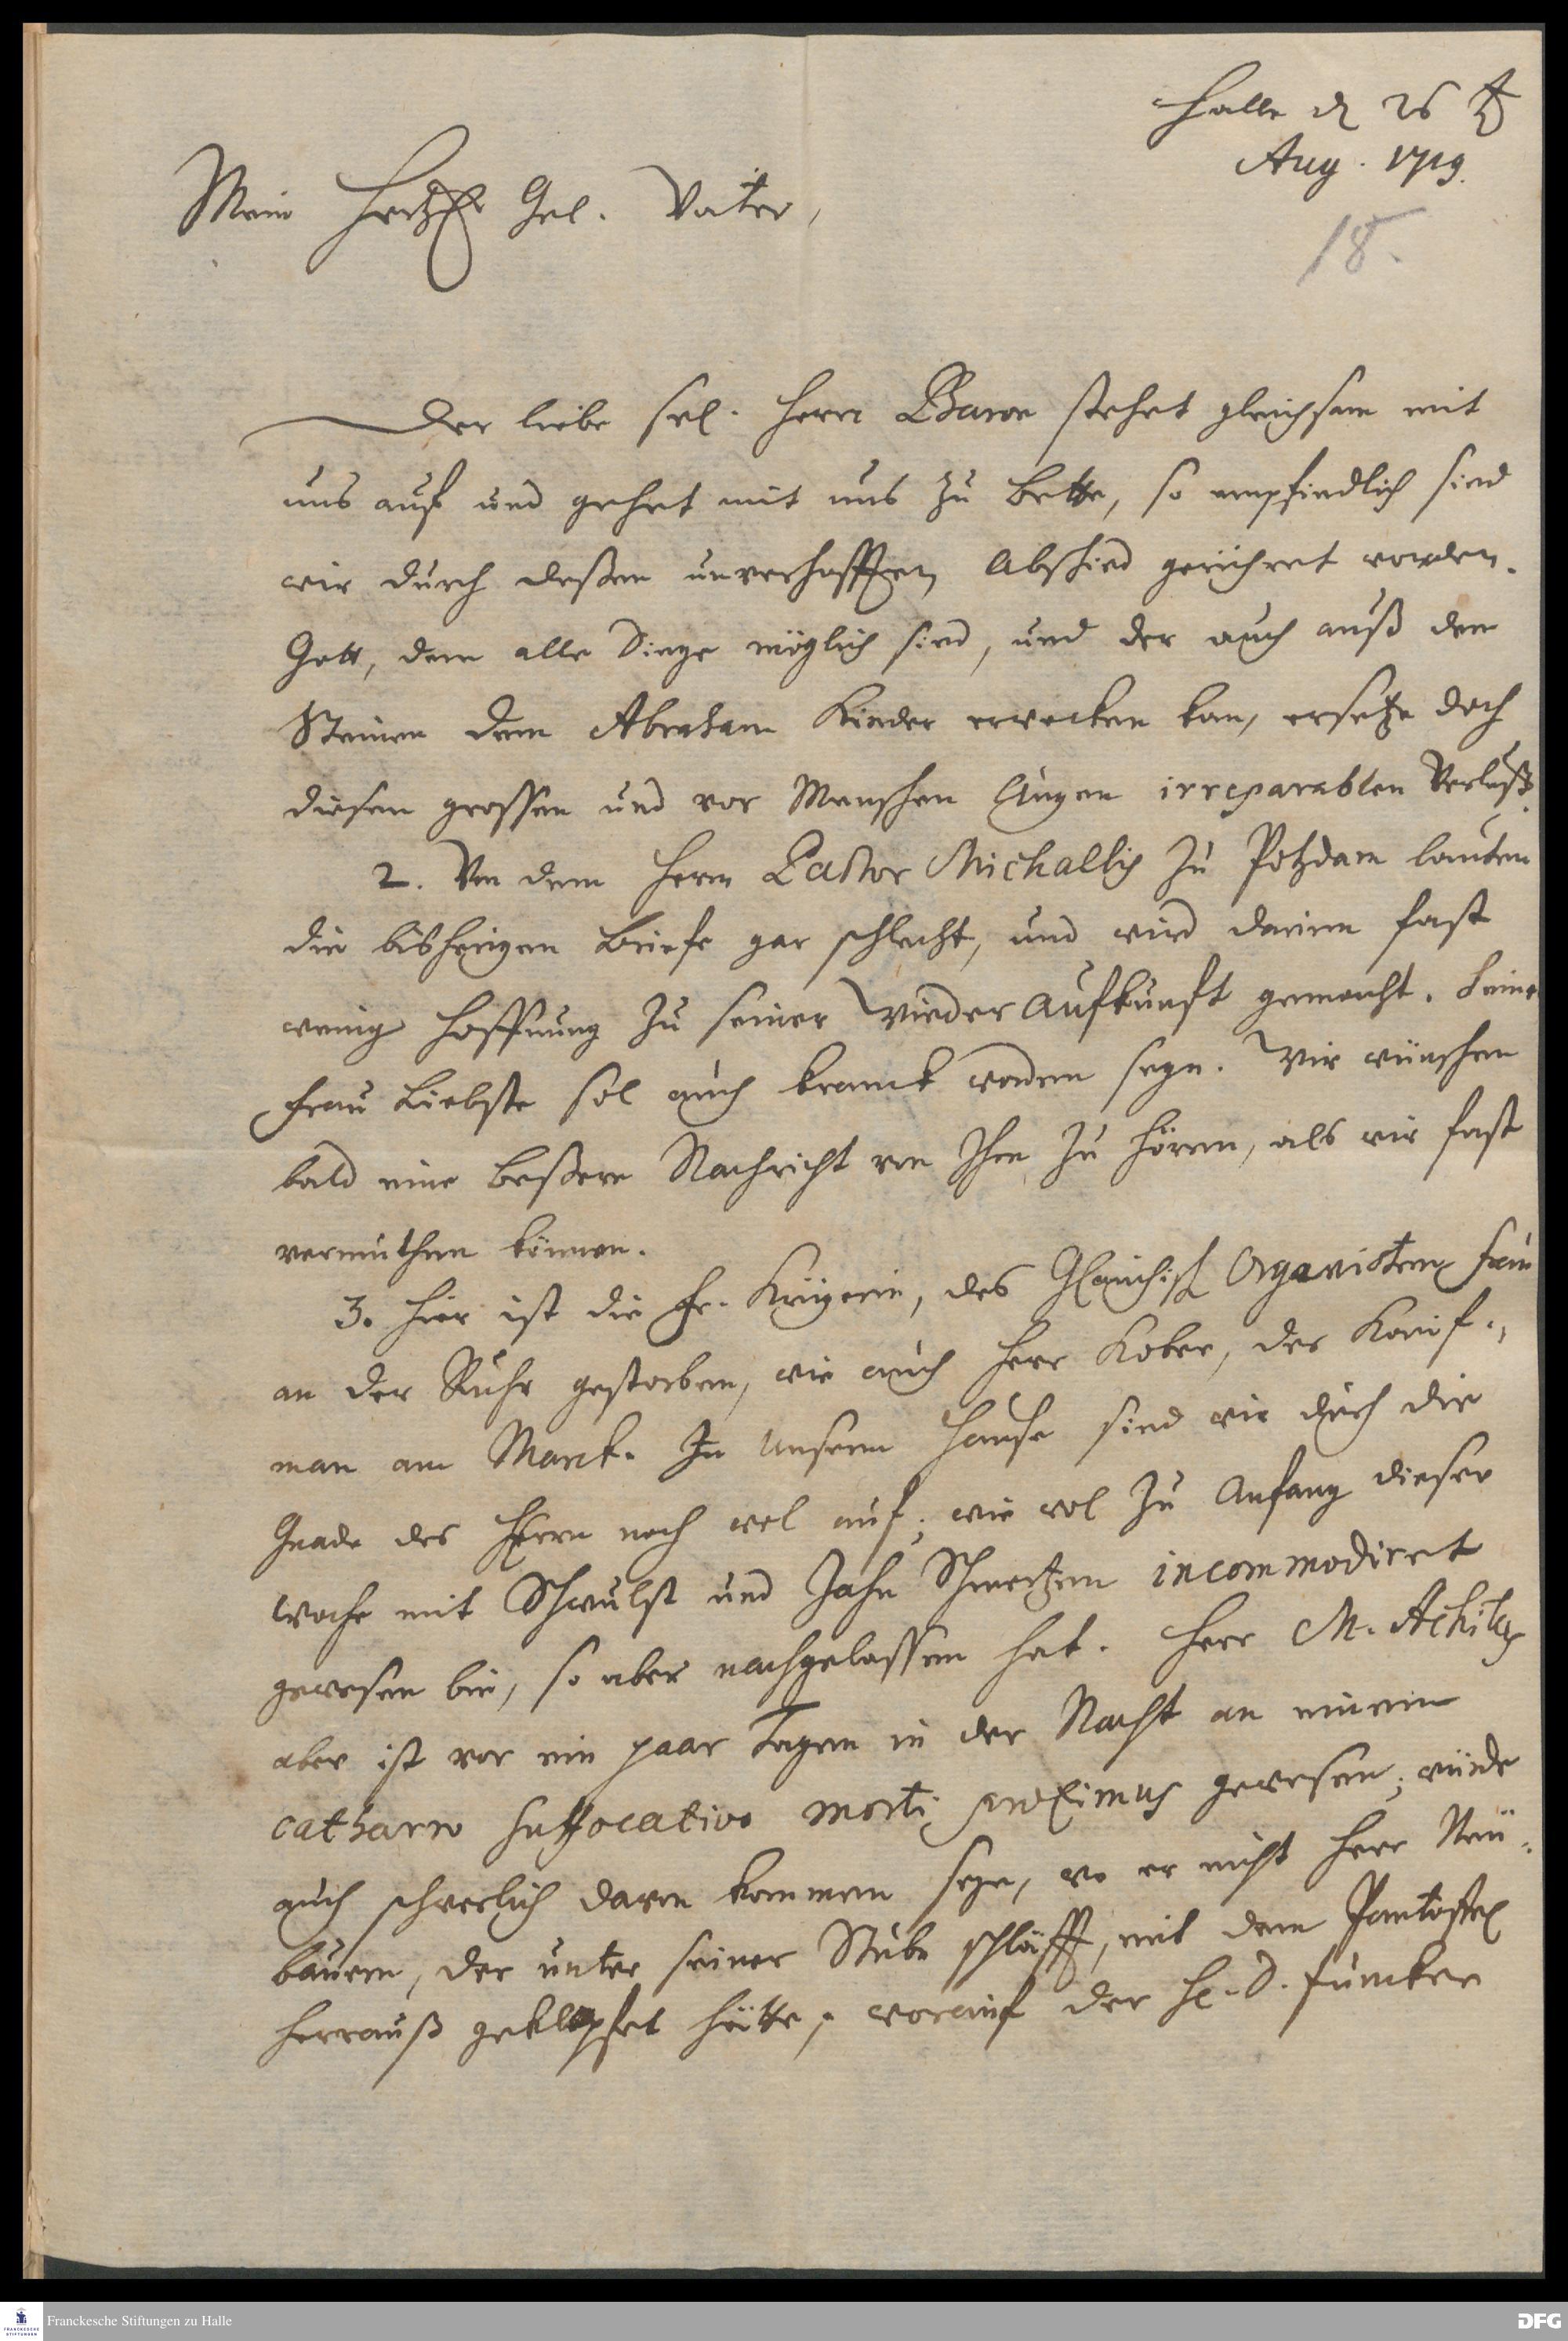 Halle d 26 ♄
Aug. 1719.
18.
Mein Hertzl Gel. Vater,
Der liebe sel. Herr Baron stehet gleichsam mit
uns auf und gehet mit uns zu Bette, so empfindlich sind
wir durch deßen unverhofften Abschied gerühret worden.
Gott, dem alle Dinge möglich sind, und der auch auß den
Steinen dem Abraham Kinder erwecken kan, ersetze doch
diesen grossen und vor Menschen Augen irreparablen Verlust.
2. Von dem Herrn Pastor Michallis zu Potzdam lauten
die bißherigen Briefe gar schlecht, und wird darinn fast
wenig Hoffnung zu seiner Wieder Aufkunfft gemacht. Seine
Frau Liebste sol auch kranck worden seyn. Wir wünschen
bald eine beßere Nachricht von Ihm zu hören, als wir fast
vermuthen können.
3. Hier ist die Fr. Krügerin, des Glauchisch Organisten Frau
an der Ruhr gestorben, wie auch Herr Kober, der Kauf-
man am Marck. In unserm Hause sind wir durch die
Gnade des HErrn noch wol auf; wie wol zu Anfang dieser
Woche mit Schwulst und Zahn Schmertzen incommodiret
gewesen bin, so aber nachgelassen hat. Herr M. Achilles
aber ist vor ein paar Tagen in der Nacht an einem
catharro suffocativo morti proximus gewesen; würde
auch schwerlich davon kommen seyn, wo er nicht Herr Neu-
bauern, der unter seiner Stube schläfft, mit dem Pantoffel
herrauß geklopfet hätte; worauf der H. D. Juncker
Franckesche Stiftungen zu Halle
DFG